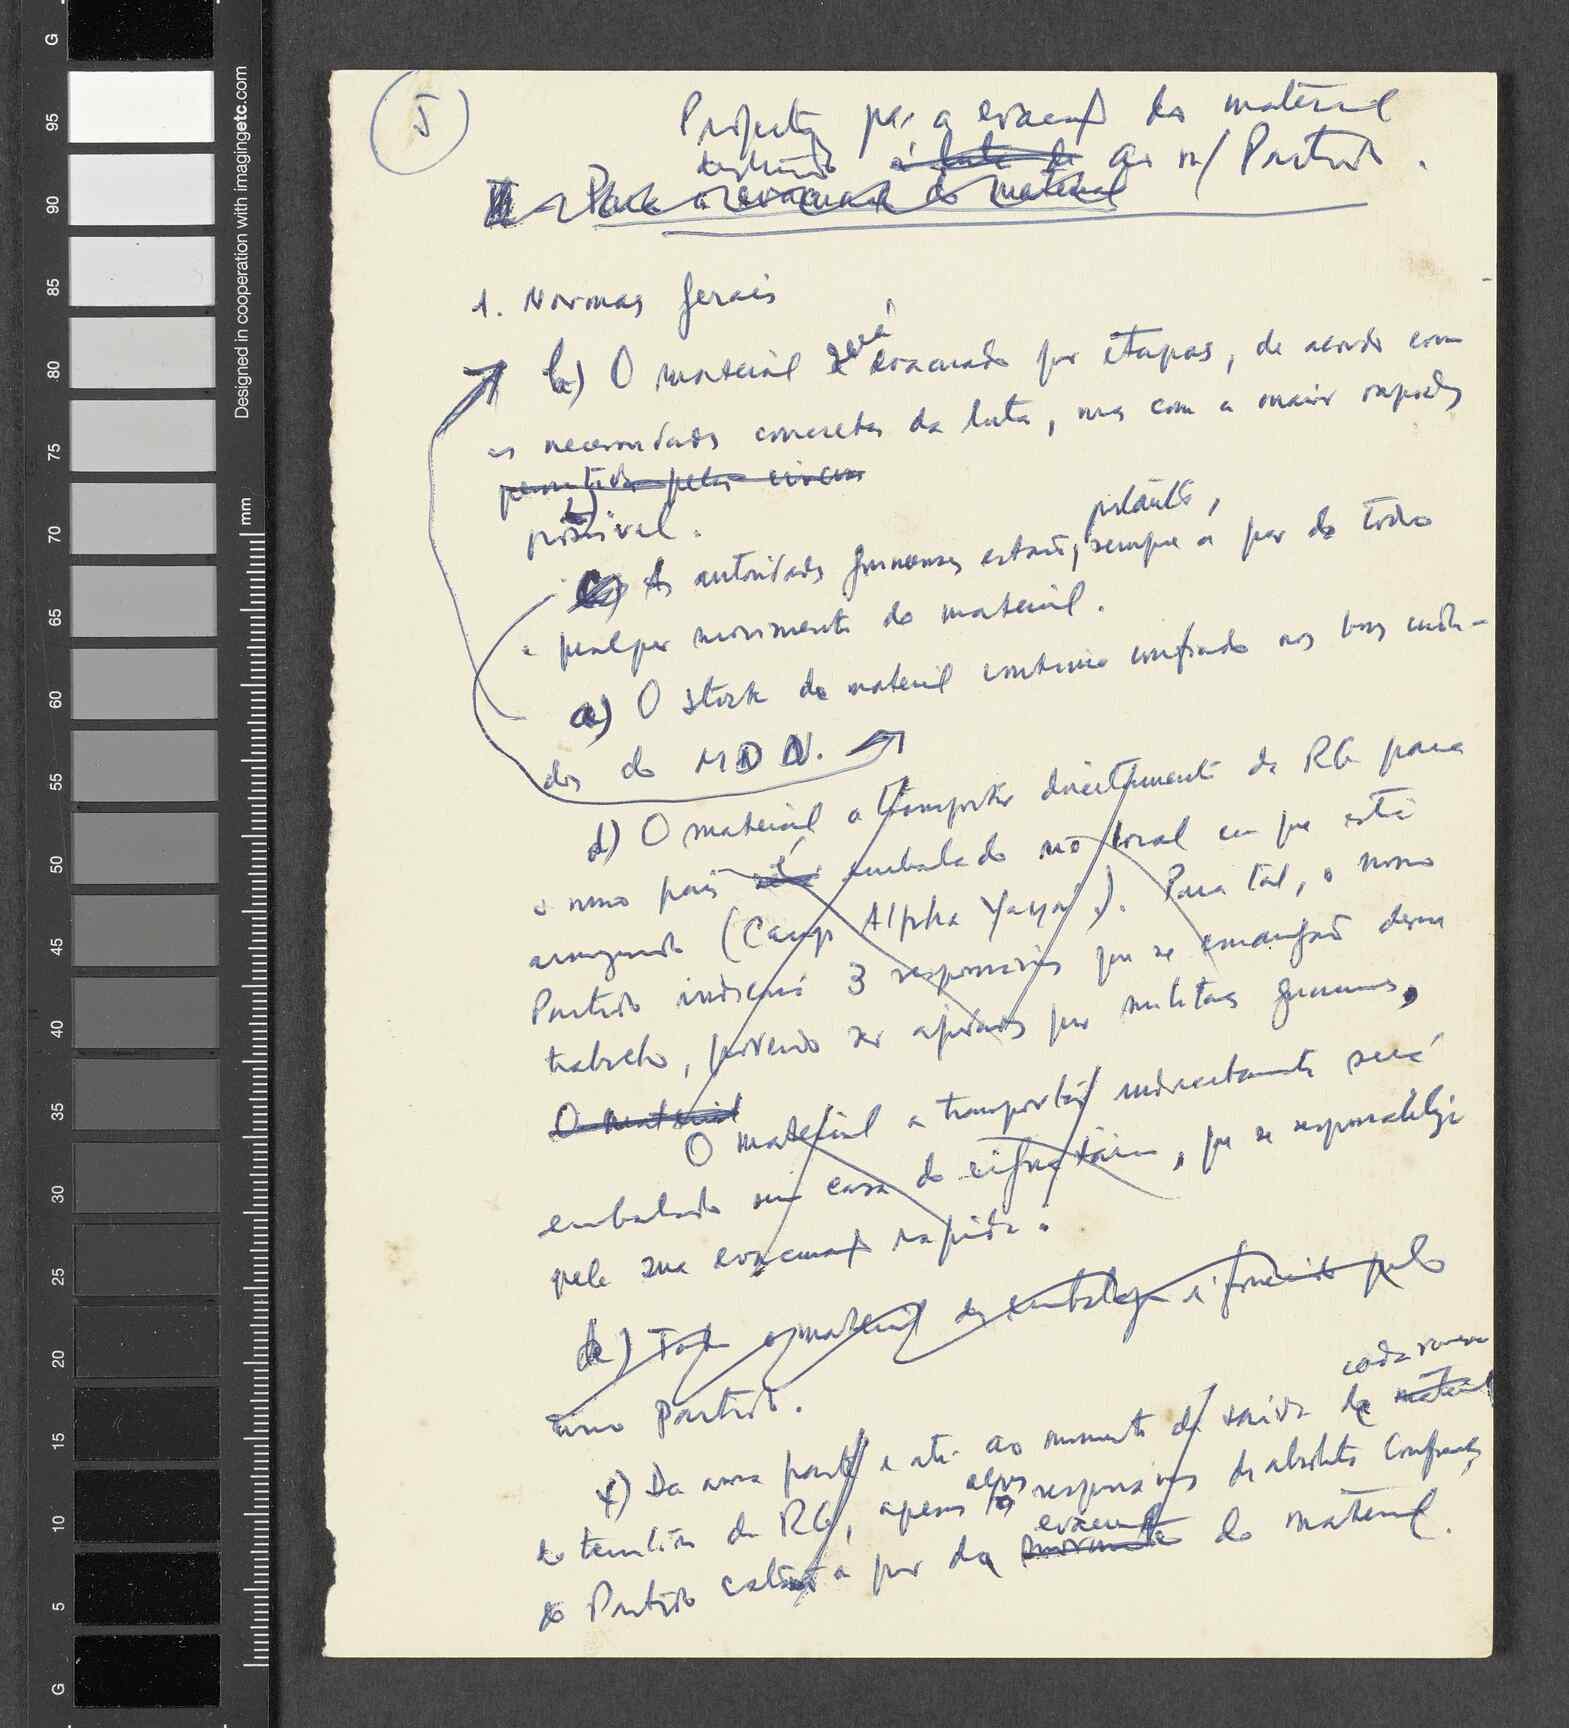 5
Projecto para a evacuação do material
destinado à luta de ao n/ Partido.
II - Para a evacuação do material
1. Normas gerais
b) O material será evacuado por etapas, de acordo com
as necessidades concretas da luta, mas com a maior rapidez
permitida pelas
possível.
portanto,
c) As autoridades guineenses estarão, sempre a par de todo
e qualquer movimento do material.
a) O stock de material continua confiado aos bons cuida-
dos do MDN.
d) O material a transportar directamente da RG para
o nosso país é embalado no local em que está
armazenado (Camp Alpha Yaya). Para tal, o nosso
Partido indicará 3 responsáveis que se encarregarão desse
trabalho, podendo ser ajudados por militares guineenses,
O material
O material a transportar indirectamente será
embalado em casa do, que se responsabiliza
pela sua evacuação rápida.
e) Todo o material de embalagem é fornecido pelo
nosso Partido.
cada remessa
f) Da nossa parte e até ao momento da saída de material
do território da RG, apenas alguns responsáveis de absoluta confiança
evacuação
do Partido estará a par da movimento do material.
Designed in cooperation with imagingetc.com
mm
G
95
90
85
80
75
70
65
60
55
50
45
40
35
30
25
20
15
10
5
G